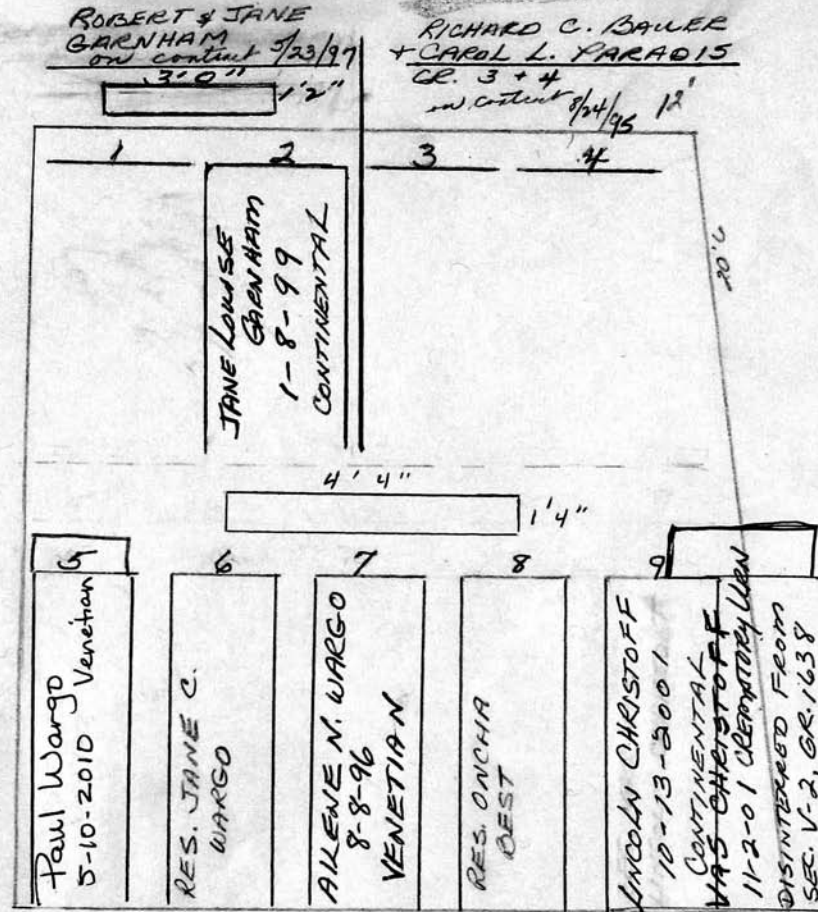 ROBERT & JANE
GARNHAM
on contract 5/23/97
3'0"
1'2"
RICHARD C. BAUER
+ CAROL L. PARADIS
GR. 3 + 4
on contract 8/24/95
12'
1
2
3
4
20'6
JANE LOUISE
GARNHAM
1-8-99
CONTINENTAL
4'4"
1'4"
5
6
7
8
9
Paul Wargo
5-10-2010 Venetian
RES. JANE C.
WARGO
AILENE N. WARGO
8-8-96
VENETIAN
RES. ONCHA
BEST
LINCOLN CHRISTOFF
10-13-2001
CONTINENTAL
VAS CHRISTOFF
11-2-01 CREMATORY URN
DISINTERRED FROM
SEC. V-2, GR. 1638